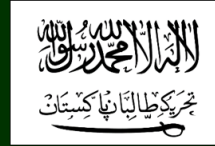 لا إله إلا الله محمد رسول الله
تحریک طالبان پاکستان